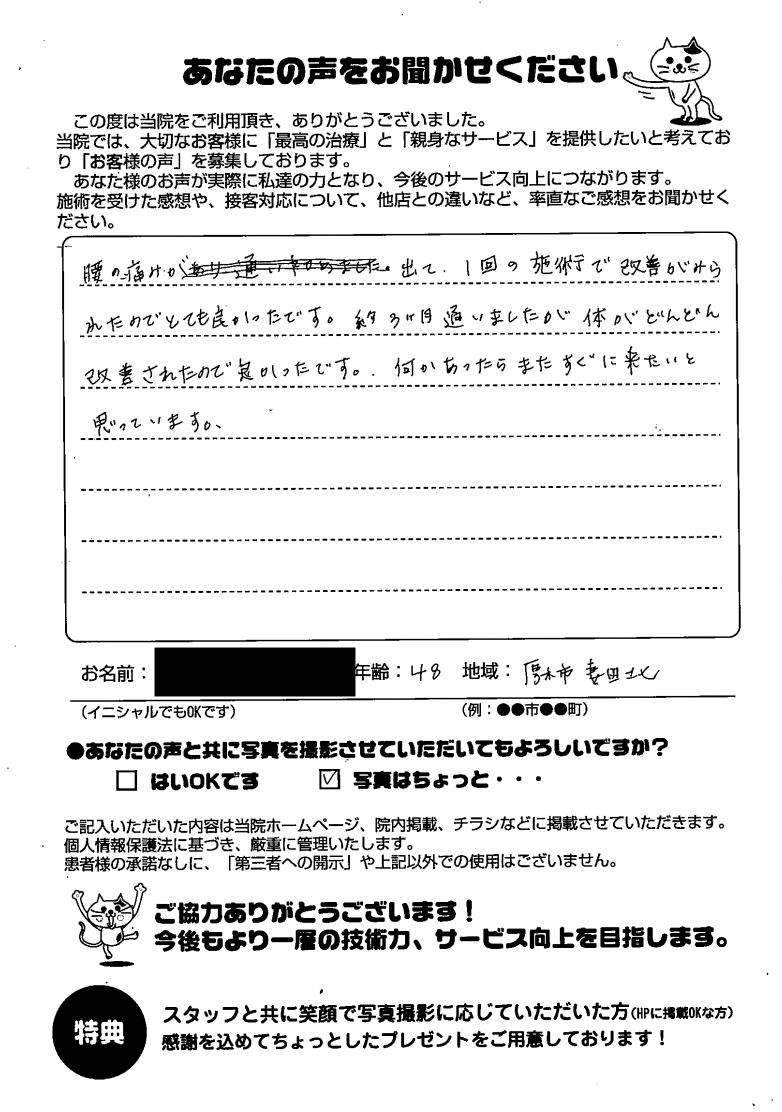 あなたの声をお聞かせください
この度は当院をご利用頂き、ありがとうございました。
当院では、大切なお客様に「最高の治療」と「親身なサービス」を提供したいと考えてお
り「お客様の声」を募集しております。
あなた様のお声が実際に私達の力となり、今後のサービス向上につながります。
施術を受けた感想や、接客対応について、他店との違いなど、率直なご感想をお聞かせく
ださい。
腰の痛みがあり通い始めました。出て、1回の施術で改善がみら
れたのでとても良かったです。約3ヶ月通いましたが体がどんどん
改善されたので良かったです。何かあったらまたすぐに来たいと
思っています。
お名前： 年齢：48 地域：厚木市 妻田北
（イニシャルでもOKです） （例：●●市●●町）
●あなたの声と共に写真を撮影させていただいてもよろしいですか？
□ はいOKです ☑ 写真はちょっと・・・
ご記入いただいた内容は当院ホームページ、院内掲載、チラシなどに掲載させていただきます。
個人情報保護法に基づき、厳重に管理いたします。
患者様の承諾なしに、「第三者への開示」や上記以外での使用はございません。
ご協力ありがとうございます！
今後もより一層の技術力、サービス向上を目指します。
特典
スタッフと共に笑顔で写真撮影に応じていただいた方（HPに掲載OKな方）
感謝を込めてちょっとしたプレゼントをご用意しております！